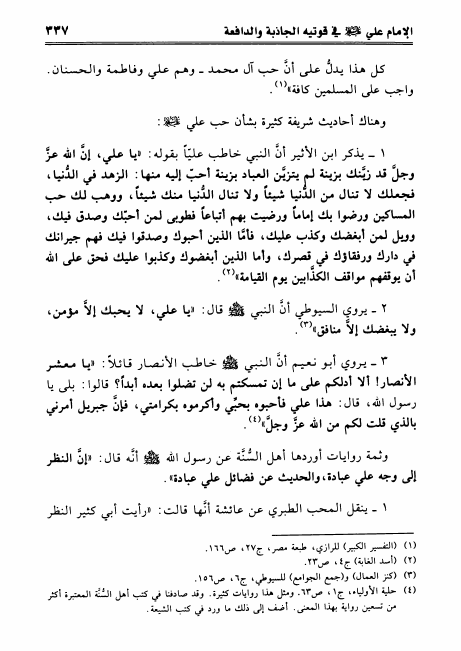 الإمام علي ﷺ في قوتيه الجاذبة والدافعة ٣٣٧
كل هذا يدلُّ على أنَّ حب آل محمد ـ وهم علي وفاطمة والحسنان ـ
واجب على المسلمين كافة»(١).
وهناك أحاديث شريفة كثيرة بشأن حب علي ﷺ:
١ ـ يذكر ابن الأثير أنَّ النبي خاطب عليّاً بقوله: «يا علي، إنَّ الله عزَّ
وجلَّ قد زيَّنك بزينة لم يتزيَّن العباد بزينة أحبّ إليه منها: الزهد في الدُّنيا،
فجعلك لا تنال من الدُّنيا شيئاً ولا تنال الدُّنيا منك شيئاً، ووهب لك حب
المساكين ورضوا بك إماماً ورضيت بهم أتباعاً فطوبى لمن أحبّك وصدق فيك،
وويل لمن أبغضك وكذب عليك، فأمَّا الذين أحبوك وصدقوا فيك فهم جيرانك
في دارك ورفقاؤك في قصرك، وأما الذين أبغضوك وكذبوا عليك فحق على الله
أن يوقفهم مواقف الكذَّابين يوم القيامة»(٢).
٢ ـ يروي السيوطي أنَّ النبي ﷺ قال: «يا علي، لا يحبك إلاَّ مؤمن،
ولا يبغضك إلاَّ منافق»(٣).
٣ ـ يروي أبو نعيم أنَّ النبي ﷺ خاطب الأنصار قائلاً: «يا معشر
الأنصار! ألا أدلكم على ما إن تمسكتم به لن تضلوا بعده أبداً؟ قالوا: بلى يا
رسول الله، قال: هذا علي فأحبوه بحبِّي وأكرموه بكرامتي، فإنَّ جبريل أمرني
بالذي قلت لكم من الله عزَّ وجلَّ»(٤).
وثمة روايات أوردها أهل السُّنَّة عن رسول الله ﷺ أنَّه قال: «إنَّ النظر
إلى وجه علي عبادة، والحديث عن فضائل علي عبادة».
١ ـ ينقل المحب الطبري عن عائشة أنَّها قالت: «رأيت أبي كثير النظر
(١) (التفسير الكبير) للرازي، طبعة مصر، ج٢٧، ص١٦٦.
(٢) (أسد الغابة) ج٤، ص٢٣.
(٣) (كنز العمال) و(جمع الجوامع) للسيوطي، ج٦، ص١٥٦.
(٤) حلية الأولياء، ج١، ص٦٣. ومثل هذا روايات كثيرة. وقد صادفنا في كتب أهل السُّنَّة المعتبرة أكثر
من تسعين رواية بهذا المعنى. أضف إلى ذلك ما ورد في كتب الشيعة.